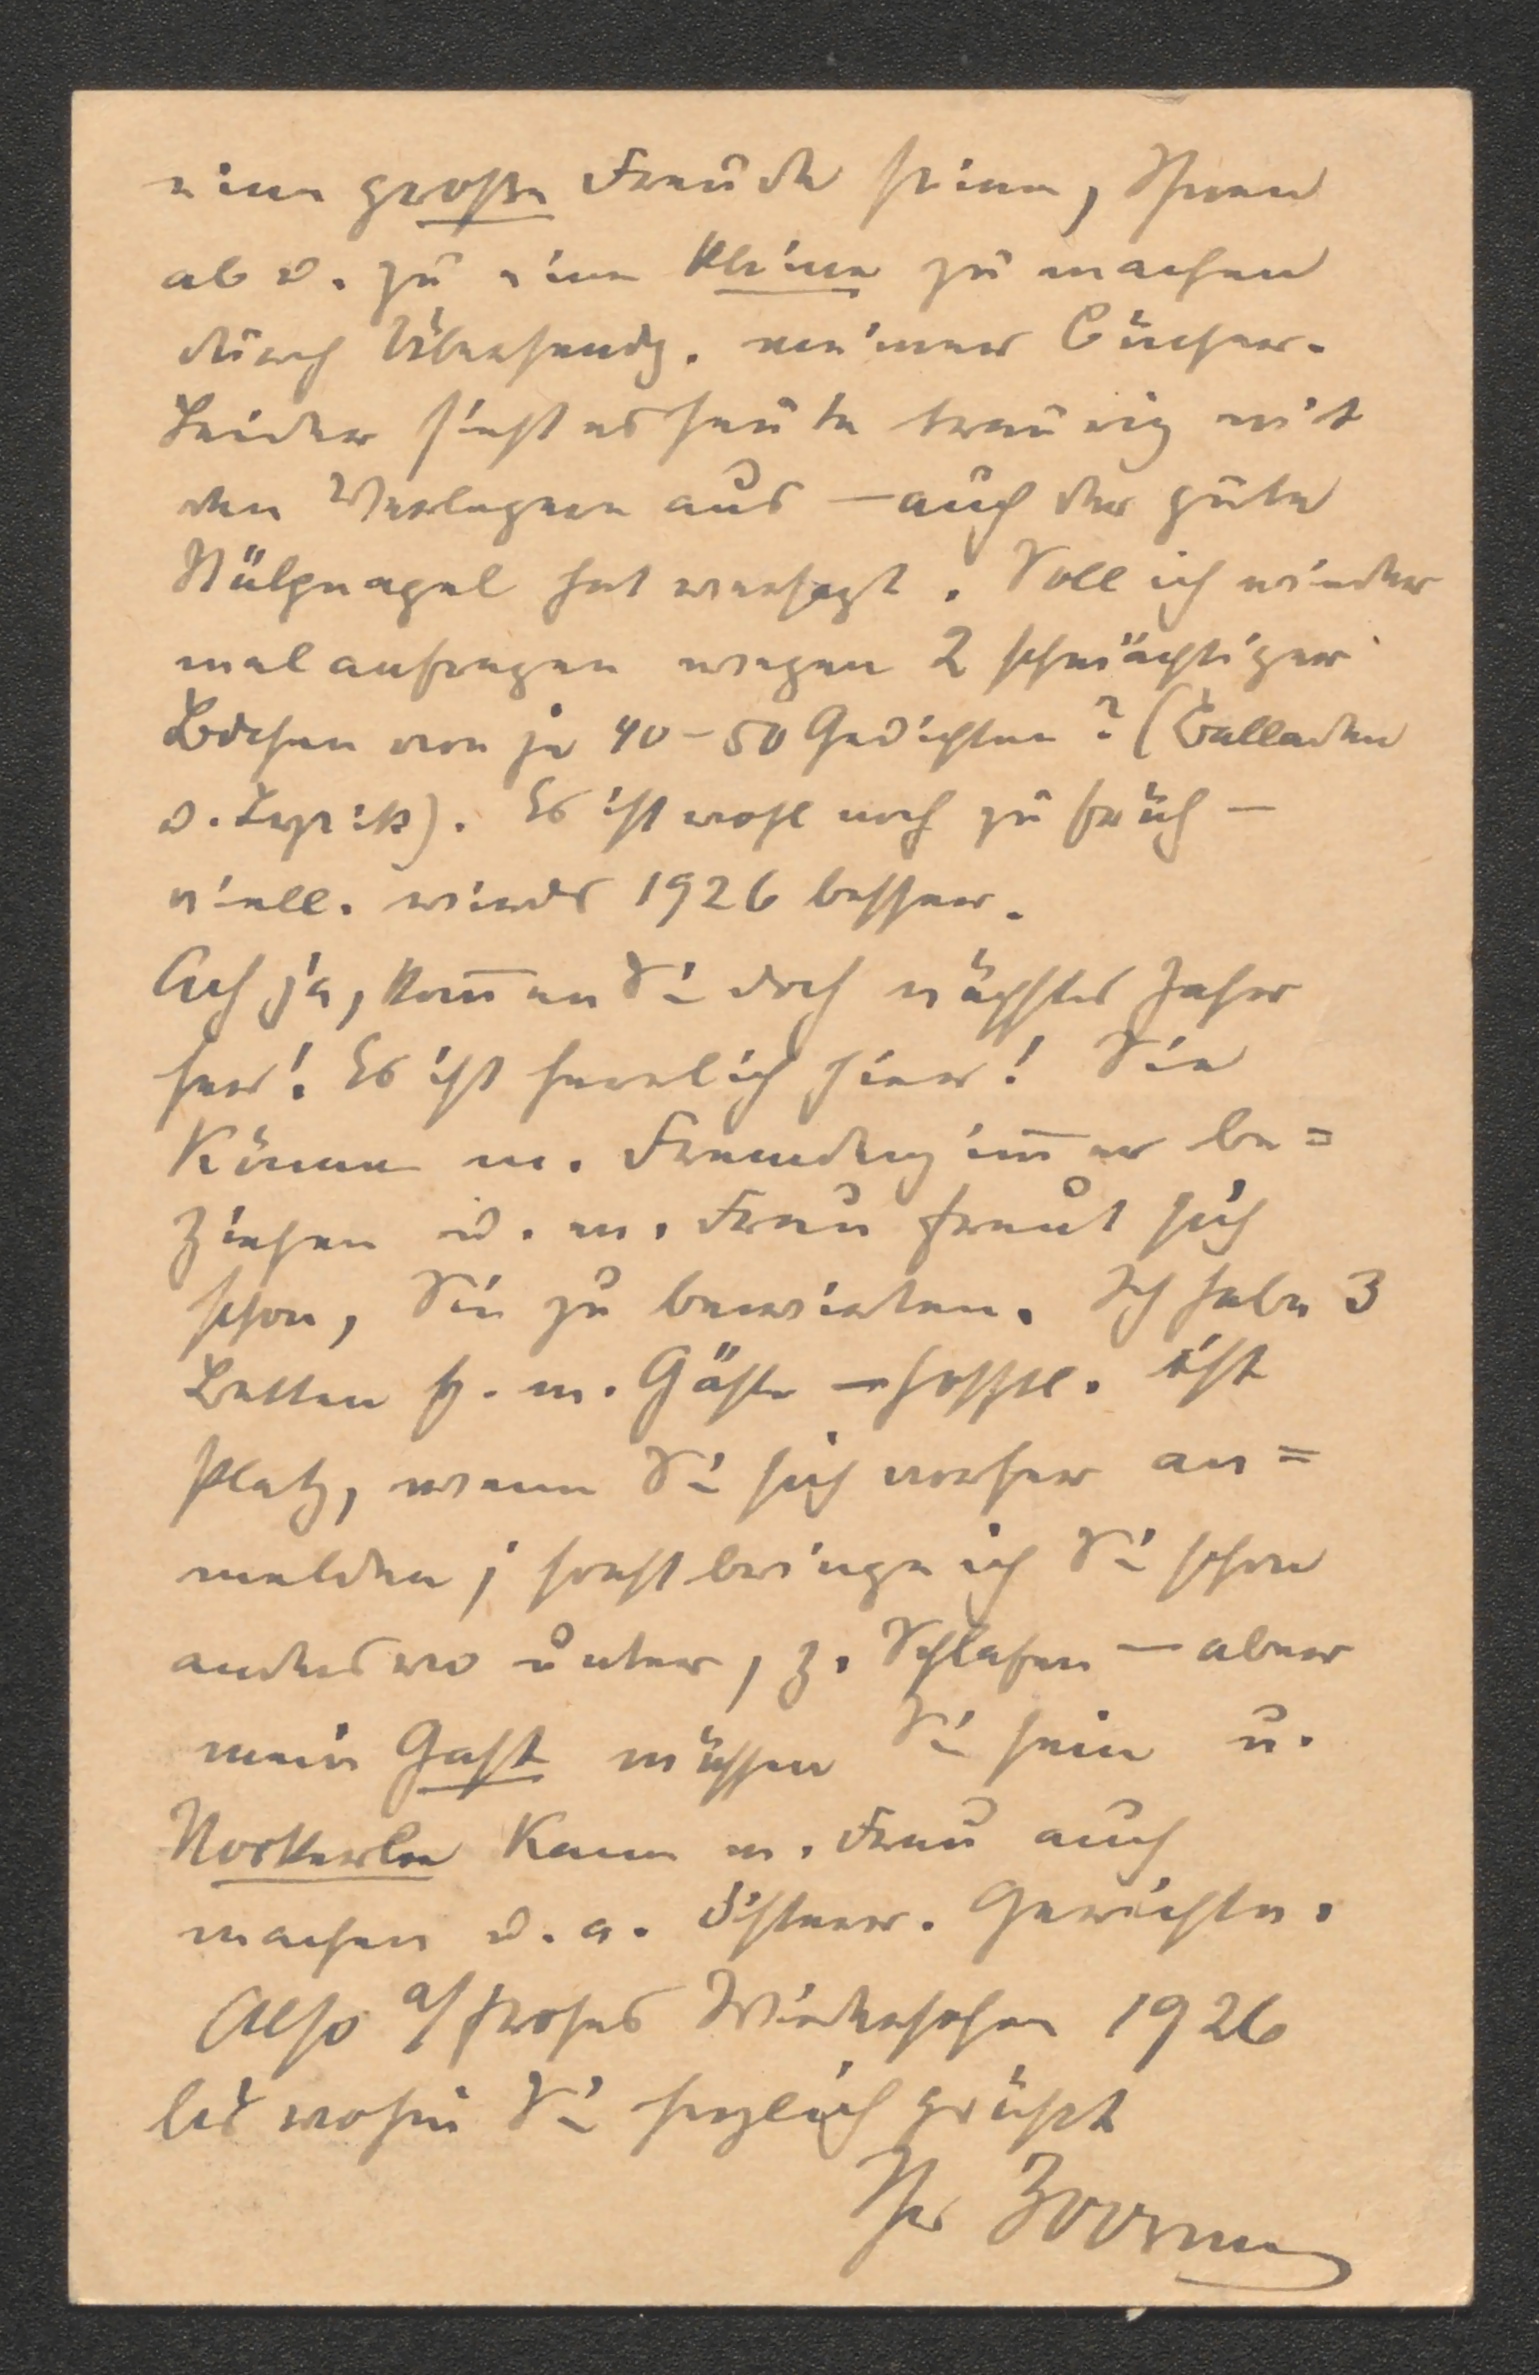 eine große Freude seinen, Ihnen
ab u. zu eine kleine zu machen
durch Übersendg. meiner Bücher.
Leider sieht es heute traurig mit
den Verlegern aus – auch der gute
hat versagt. Soll ich wieder
mal anfragen wegen 2 schmächtiger
Bdchen von je 40–50 Gedichten? (Balladen
u. Lyrik). Es ist wohl noch zu früh –
viell. wirds 1926 besser.
Ach ja, kom̄en Sie doch nächstes Jahr
her! Es ist herrlich hier! Sie
können m. Fremdenzim̄er be=
ziehen u. m. Frau freut sich
schon, Sie zu bewirten. Ich habe 3
Betten f. m. Gäste – hofftl. ist
Platz, wenn Sie sich vorher an=
melden; sonst bringe ich Sie schon
anderswo unter, z. Schlafen – aber
mein Gast müssen Sie sein u.
Nockerln kann m. Frau auch
machen u. a. österr. Gerichte.
Also a/ frohes Wiedersehen 1926
bis wohin Sie herzlich grüßt
Ihr